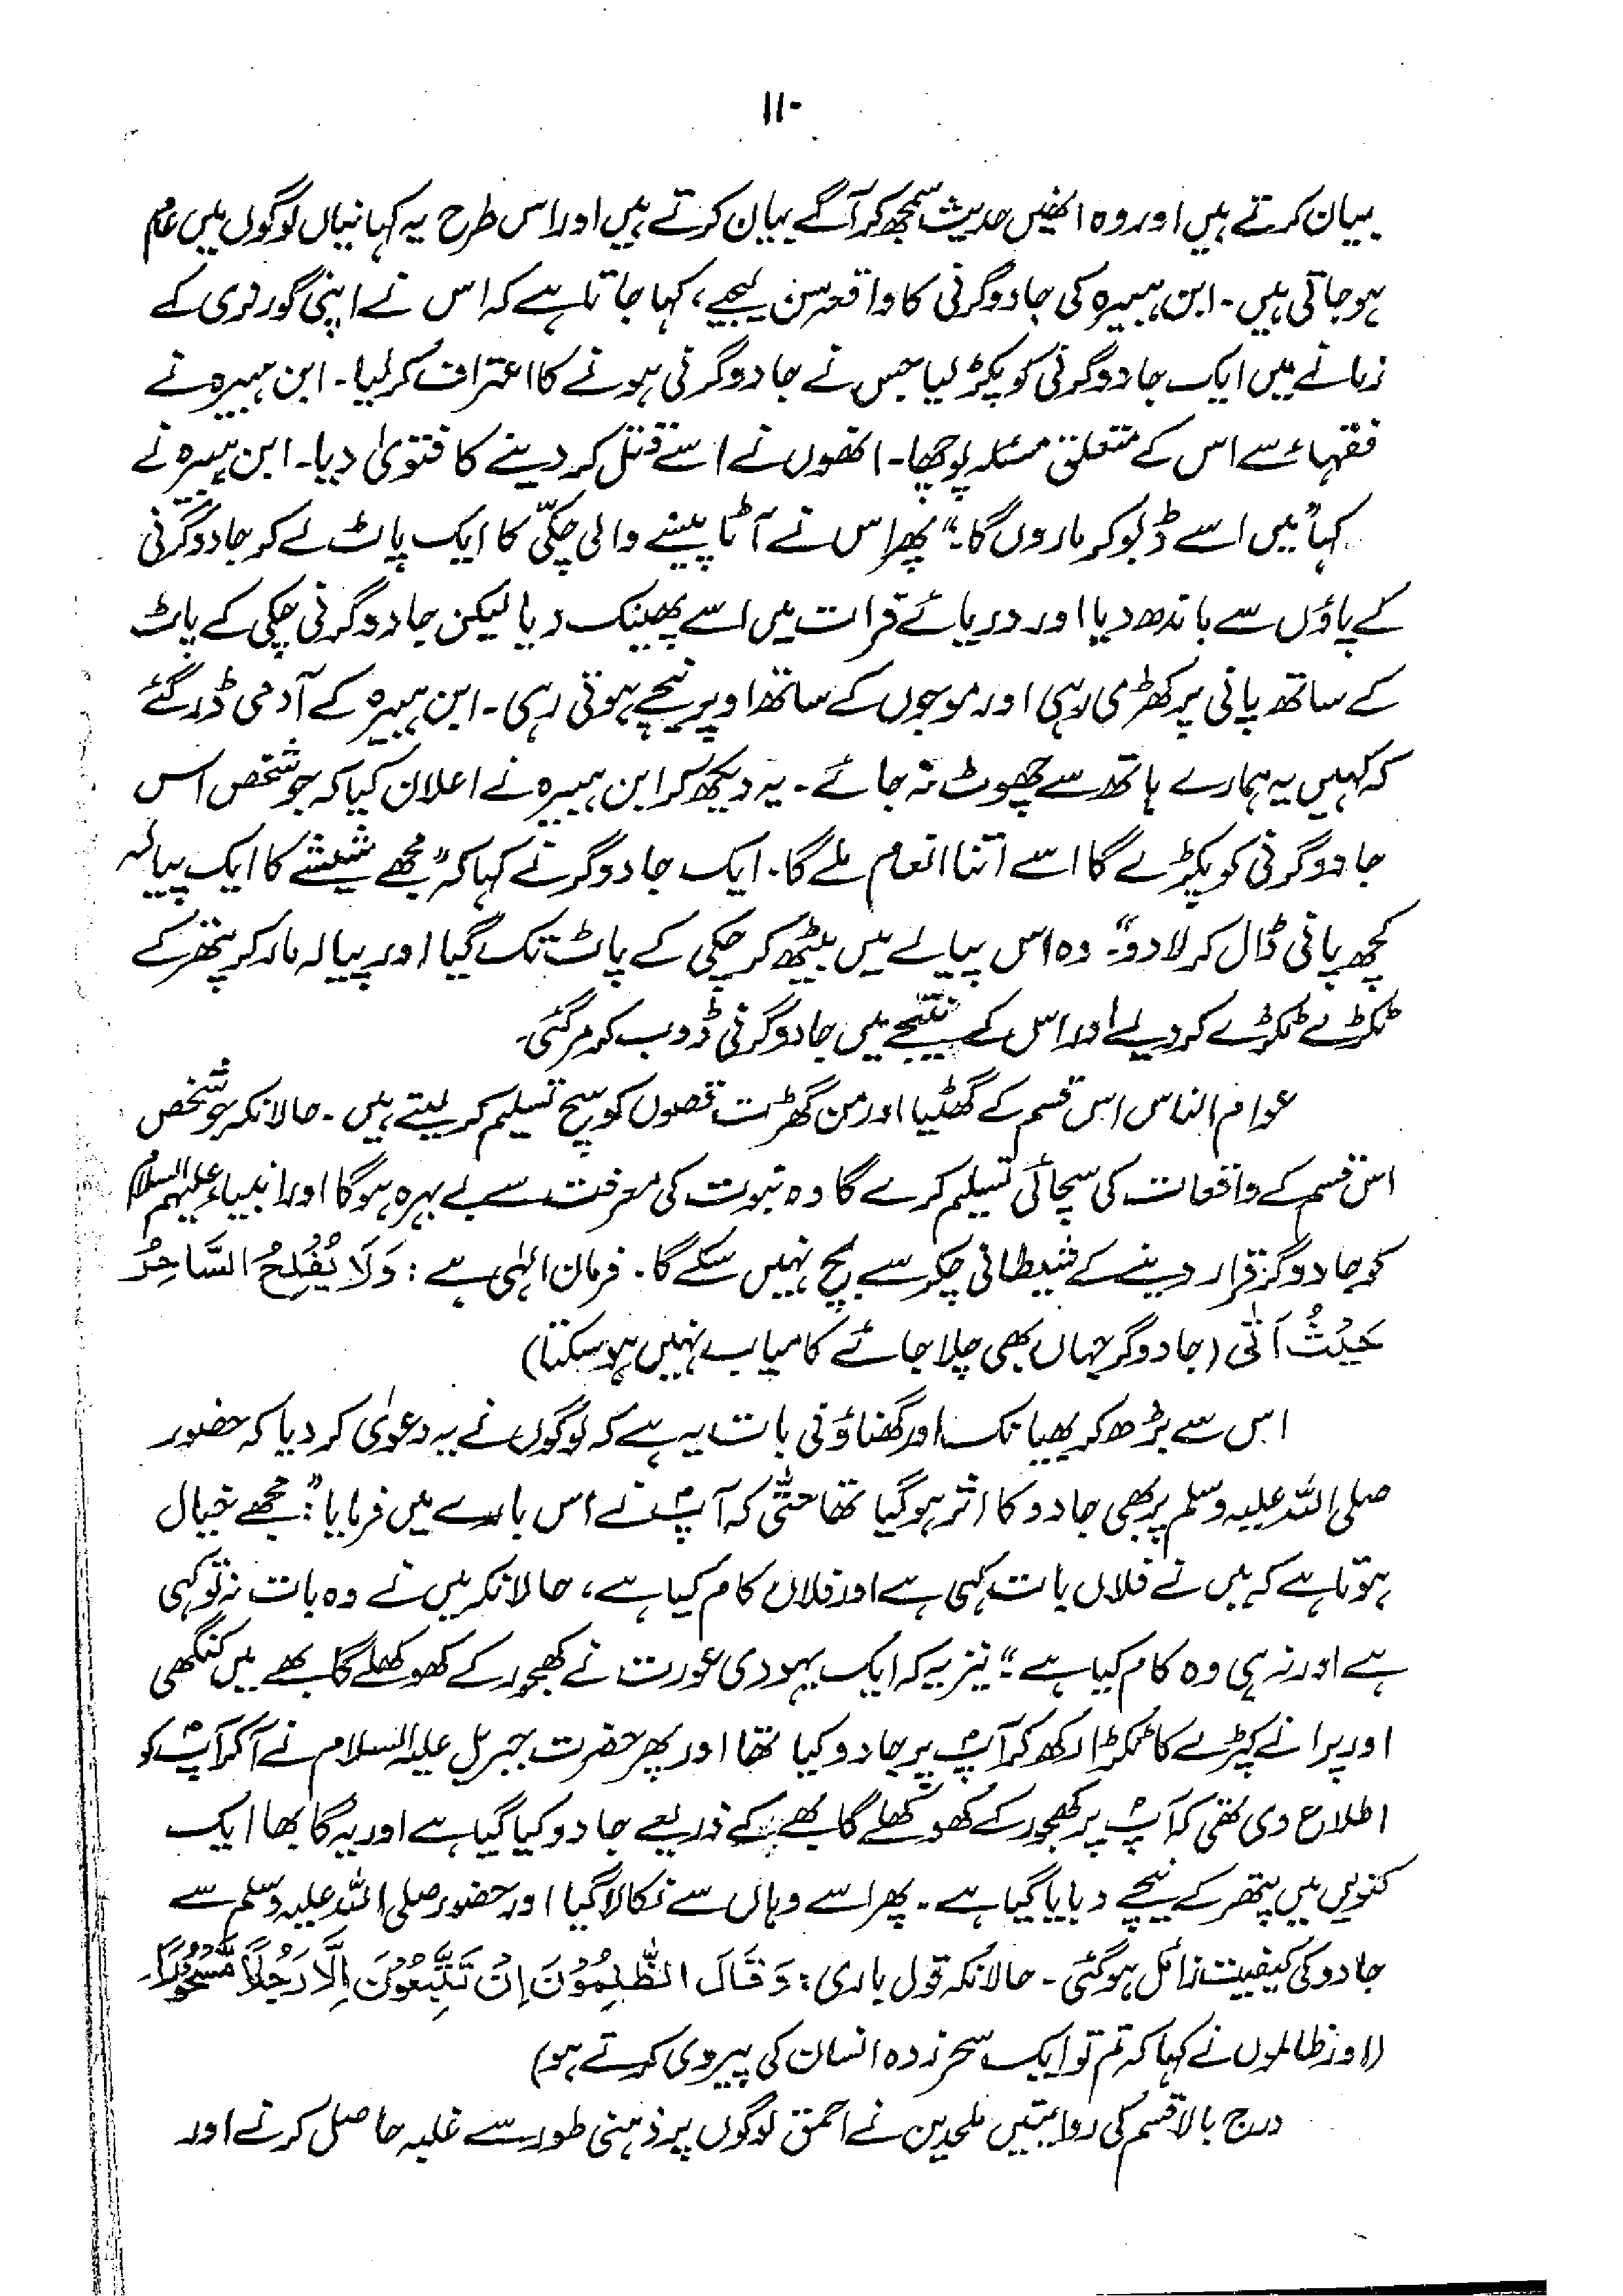 ۱۱۰
بیان کرتے ہیں اور وہ انھیں حدیث سمجھ کر آگے بیان کرتے ہیں اور اس طرح یہ کہانیاں لوگوں میں عام
ہو جاتی ہیں۔ ابن ہبیرہ کی جادوگرنی کا واقعہ سن لیجیے، کہا جاتا ہے کہ اس نے اپنی گورنری کے
زمانے میں ایک جادوگرنی کو پکڑ لیا جس نے جادوگرنی ہونے کا اعتراف کر لیا۔ ابن ہبیرہ نے
فقہاء سے اس کے متعلق مسئلہ پوچھا۔ انھوں نے اسے قتل کر دینے کا فتویٰ دیا۔ ابن ہبیرہ نے
کہا "میں اسے ڈبو کر ماروں گا۔" پھر اس نے آٹا پیسنے والی چکّی کا ایک پاٹ لے کر جادوگرنی
کے پاؤں سے باندھ دیا اور دریائے فرات میں اسے پھینک دیا لیکن جادوگرنی چکی کے پاٹ
کے ساتھ پانی پر کھڑی رہی اور موجوں کے ساتھ اوپر نیچے ہوتی رہی۔ ابن ہبیرہ کے آدمی ڈر گئے
کہ کہیں یہ ہمارے ہاتھ سے چھوٹ نہ جائے۔ یہ دیکھ کر ابن ہبیرہ نے اعلان کیا کہ جو شخص اس
جادوگرنی کو پکڑے گا اسے اتنا انعام ملے گا۔ ایک جادوگر نے کہا کہ "مجھے شیشے کا ایک پیالہ
کچھ پانی ڈال کر لا دو"۔ وہ اس پیالے میں بیٹھ کر چکی کے پاٹ تک گیا اور پیالہ مار کر پتھر کے
ٹکڑے ٹکڑے کر دیے اور اس کے نتیجے میں جادوگرنی ڈوب کر مر گئی۔
عوام الناس اس قسم کے گھٹیا اور من گھڑت قصوں کو سچ تسلیم کر لیتے ہیں۔ حالانکہ جو شخص
اس قسم کے واقعات کی سچائی تسلیم کرے گا وہ نبوت کی معرفت سے بے بہرہ ہو گا اور انبیاء علیہم السلام
کو جادوگر قرار دینے کے شیطانی چکر سے بچ نہیں سکے گا۔ فرمان الٰہی ہے: وَلَا یُفْلِحُ السَّاحِرُ
حَیْثُ اَتٰی (جادوگر جہاں بھی چلا جائے کامیاب نہیں ہو سکتا)
اس سے بڑھ کر بھیانک اور گھناؤنی بات یہ ہے کہ لوگوں نے یہ دعویٰ کر دیا کہ حضور
صلی اللہ علیہ وسلم پر بھی جادو کا اثر ہو گیا تھا حتّٰی کہ آپؐ نے اس بارے میں فرمایا: "مجھے خیال
ہوتا ہے کہ میں نے فلاں بات کہی ہے اور فلاں کام کیا ہے، حالانکہ میں نے وہ بات نہ تو کہی
ہے اور نہ ہی وہ کام کیا ہے" نیز یہ کہ ایک یہودی عورت نے کھجور کے کھوکھلے گابھے میں کنگھی
اور پرانے کپڑے کا ٹکڑا رکھ کر آپؐ پر جادو کیا تھا اور پھر حضرت جبریل علیہ السلام نے آ کر آپؐ کو
اطلاع دی تھی کہ آپؐ پر کھجور کے کھوکھلے گابھے کے ذریعے جادو کیا گیا ہے اور یہ گابھا ایک
کنویں میں پتھر کے نیچے دبایا گیا ہے۔ پھر اسے وہاں سے نکالا گیا اور حضور صلی اللہ علیہ وسلم سے
جادو کی کیفیت زائل ہو گئی۔ حالانکہ قول باری: وَقَالَ الظّٰلِمُوْنَ اِنْ تَتَّبِعُوْنَ اِلَّا رَجُلًا مَّسْحُوْرًا۔
(اور ظالموں نے کہا کہ تم تو ایک سحر زدہ انسان کی پیروی کرتے ہو)
درج بالا قسم کی روایتیں ملحدین نے احمق لوگوں پر ذہنی طور سے غلبہ حاصل کرنے اور